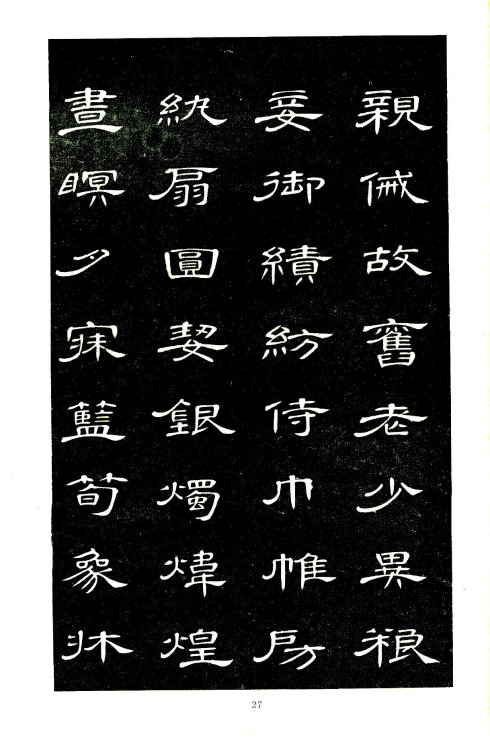 親戚故舊老少異粮
妾御績紡侍巾帷房
紈扇圓㛃銀燭煒煌
晝瞑夕寐藍筍象牀
27